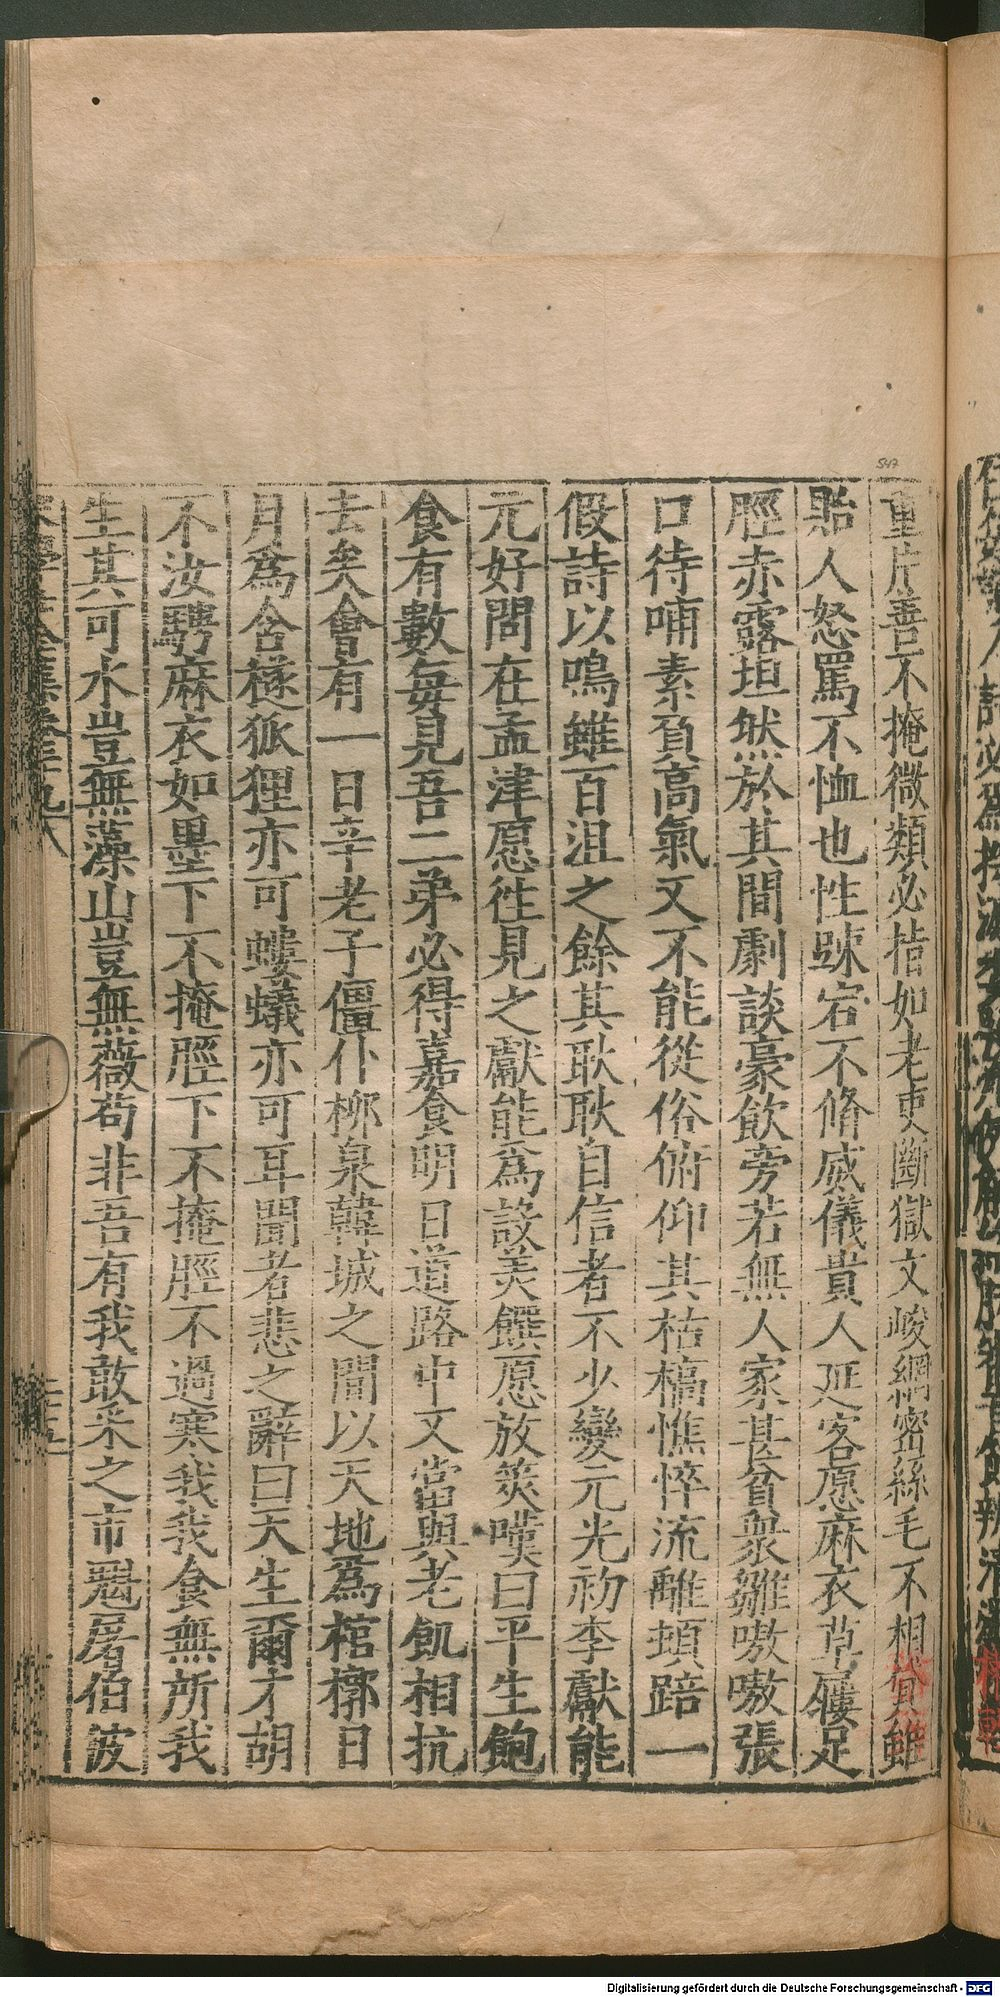 重片善不掩微類必指如老吏斷獄文峻網密絲毛不相貸雖
貽人怒罵不恤也性踈宕不脩威儀貴人延客愿麻衣草屨足
脛赤露坦然於其間劇談豪飲旁若無人家甚貧衆雛嗷嗷張
口待哺素負高氣又不能從俗俯仰其枯槁憔悴流離頓踣一
假詩以鳴雖百沮之餘其耿耿自信者不少變元光初李獻能
元好問在孟津愿徃見之獻能爲設美饌愿放筴嘆曰平生飽
食有數每見吾二弟必得嘉食明日道路中又當與老飢相抗
去矣會有一日辛老子僵仆柳泉韓城之間以天地爲棺槨日
月爲含襚狐狸亦可螻蟻亦可耳聞者悲之辭曰天生爾才胡
不汝騁麻衣如墨下不掩脛下不掩脛不過寒我我食無所我
生其可水豈無藻山豈無薇苟非吾有我敢采之市魁屠伯
547
Digitalisierung gefördert durch die Deutsche Forschungsgemeinschaft - DFG